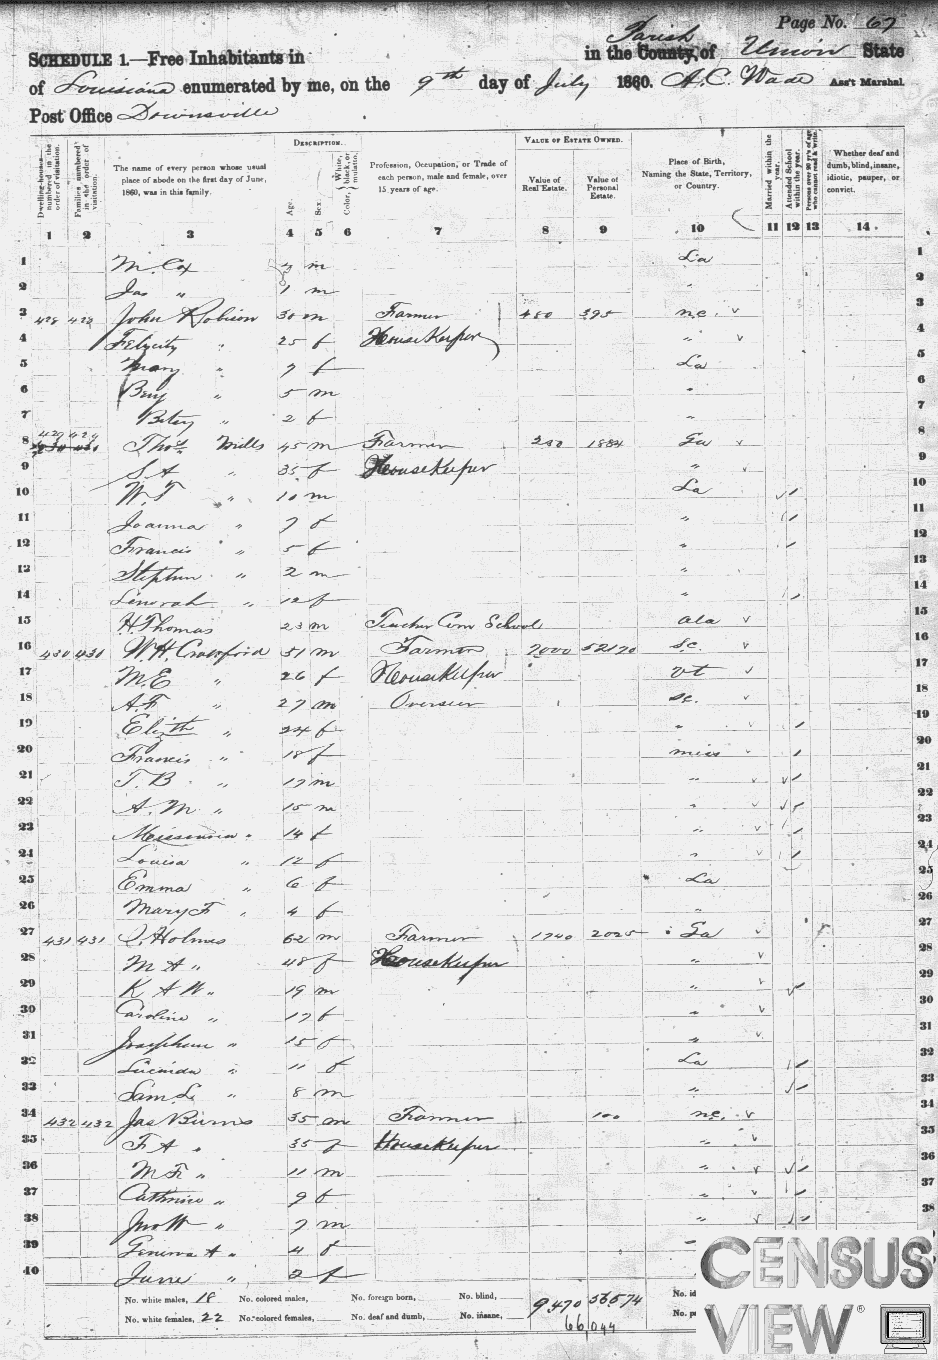 Page No. 67
SCHEDULE 1.—Free Inhabitants in in the County, of Parish Union State
of Louisiana enumerated by me, on the 9th day of July 1860. A.C. Wade Ass't Marshal.
Post Office Downsville
Dwelling-houses numbered in the order of visitation. Families numbered in the order of visitation. The name of every person whose usual place of abode on the first day of June, 1860, was in this family. DESCRIPTION. Age. Sex. Color, White, black, or mulatto. Profession, Occupation, or Trade of each person, male and female, over 15 years of age. VALUE OF ESTATE OWNED. Value of Real Estate. Value of Personal Estate. Place of Birth, Naming the State, Territory, or Country. Married within the year. Attended School within the year. Persons over 20 y'rs of age who cannot read & write. Whether deaf and dumb, blind, insane, idiotic, pauper, or convict.
1 2 3 4 5 6 7 8 9 10 11 12 13 14
1 M. Cox m La 1
2 Jas " 1 m " 2
3 428 428 John Robison 30 m Farmer 480 395 nc. 3
4 Felycity " 25 f HouseKeeper " 4
5 Mary " 7 f La 5
6 Benj " 5 m " 6
7 Betsy " 2 f " 7
8 429 429 Thos Mills 45 m Farmer 250 1884 Ga 8
9 S A " 35 f HouseKeeper " 9
10 W. T " 10 m La 10
11 Joanna " 7 f " 11
12 Francis " 5 f " 12
13 Stephen " 2 m " 13
14 Lenorah " 12 f " 14
15 H. Thomas 23 m Teacher Com School Ala 15
16 430 430 W.H. Crawford 51 m Farmer 7000 52170 Sc. 16
17 M.E " 26 f HouseKeeper vt 17
18 A.F. " 27 m Overseer Sc. 18
19 Elizth " 24 f " 19
20 Francis " 18 f miss 20
21 T. B " 17 m " 21
22 A. M " 15 m " 22
23 " 14 f " 23
24 Louisa " 12 f " 24
25 Emma " 6 f La 25
26 Mary F " 4 f " 26
27 431 431 Holmes 62 m Farmer 1740 2025 Ga 27
28 M A " 48 f HouseKeeper " 28
29 K A W " 19 m " 29
30 Caroline " 17 f " 30
31 Josephine " 15 f " 31
32 Lucinda " 11 f La 32
33 Sam L. " 8 m " 33
34 432 432 Jas Burns 35 m Farmer 100 nc. 34
35 F A " 35 f HouseKeeper " 35
36 M F " 11 m " 36
37 Cathrine " 9 f " 37
38 Jno W " 7 m " 38
39 Geneva A " 4 f "
40 June " 2 f
No. white males, 18 No. colored males, No. foreign born, No. blind, 9,470 56574 No. id
No. white females, 22 No. colored females, No. deaf and dumb, No. insane, 66,044 No. p
CENSUS
VIEW®